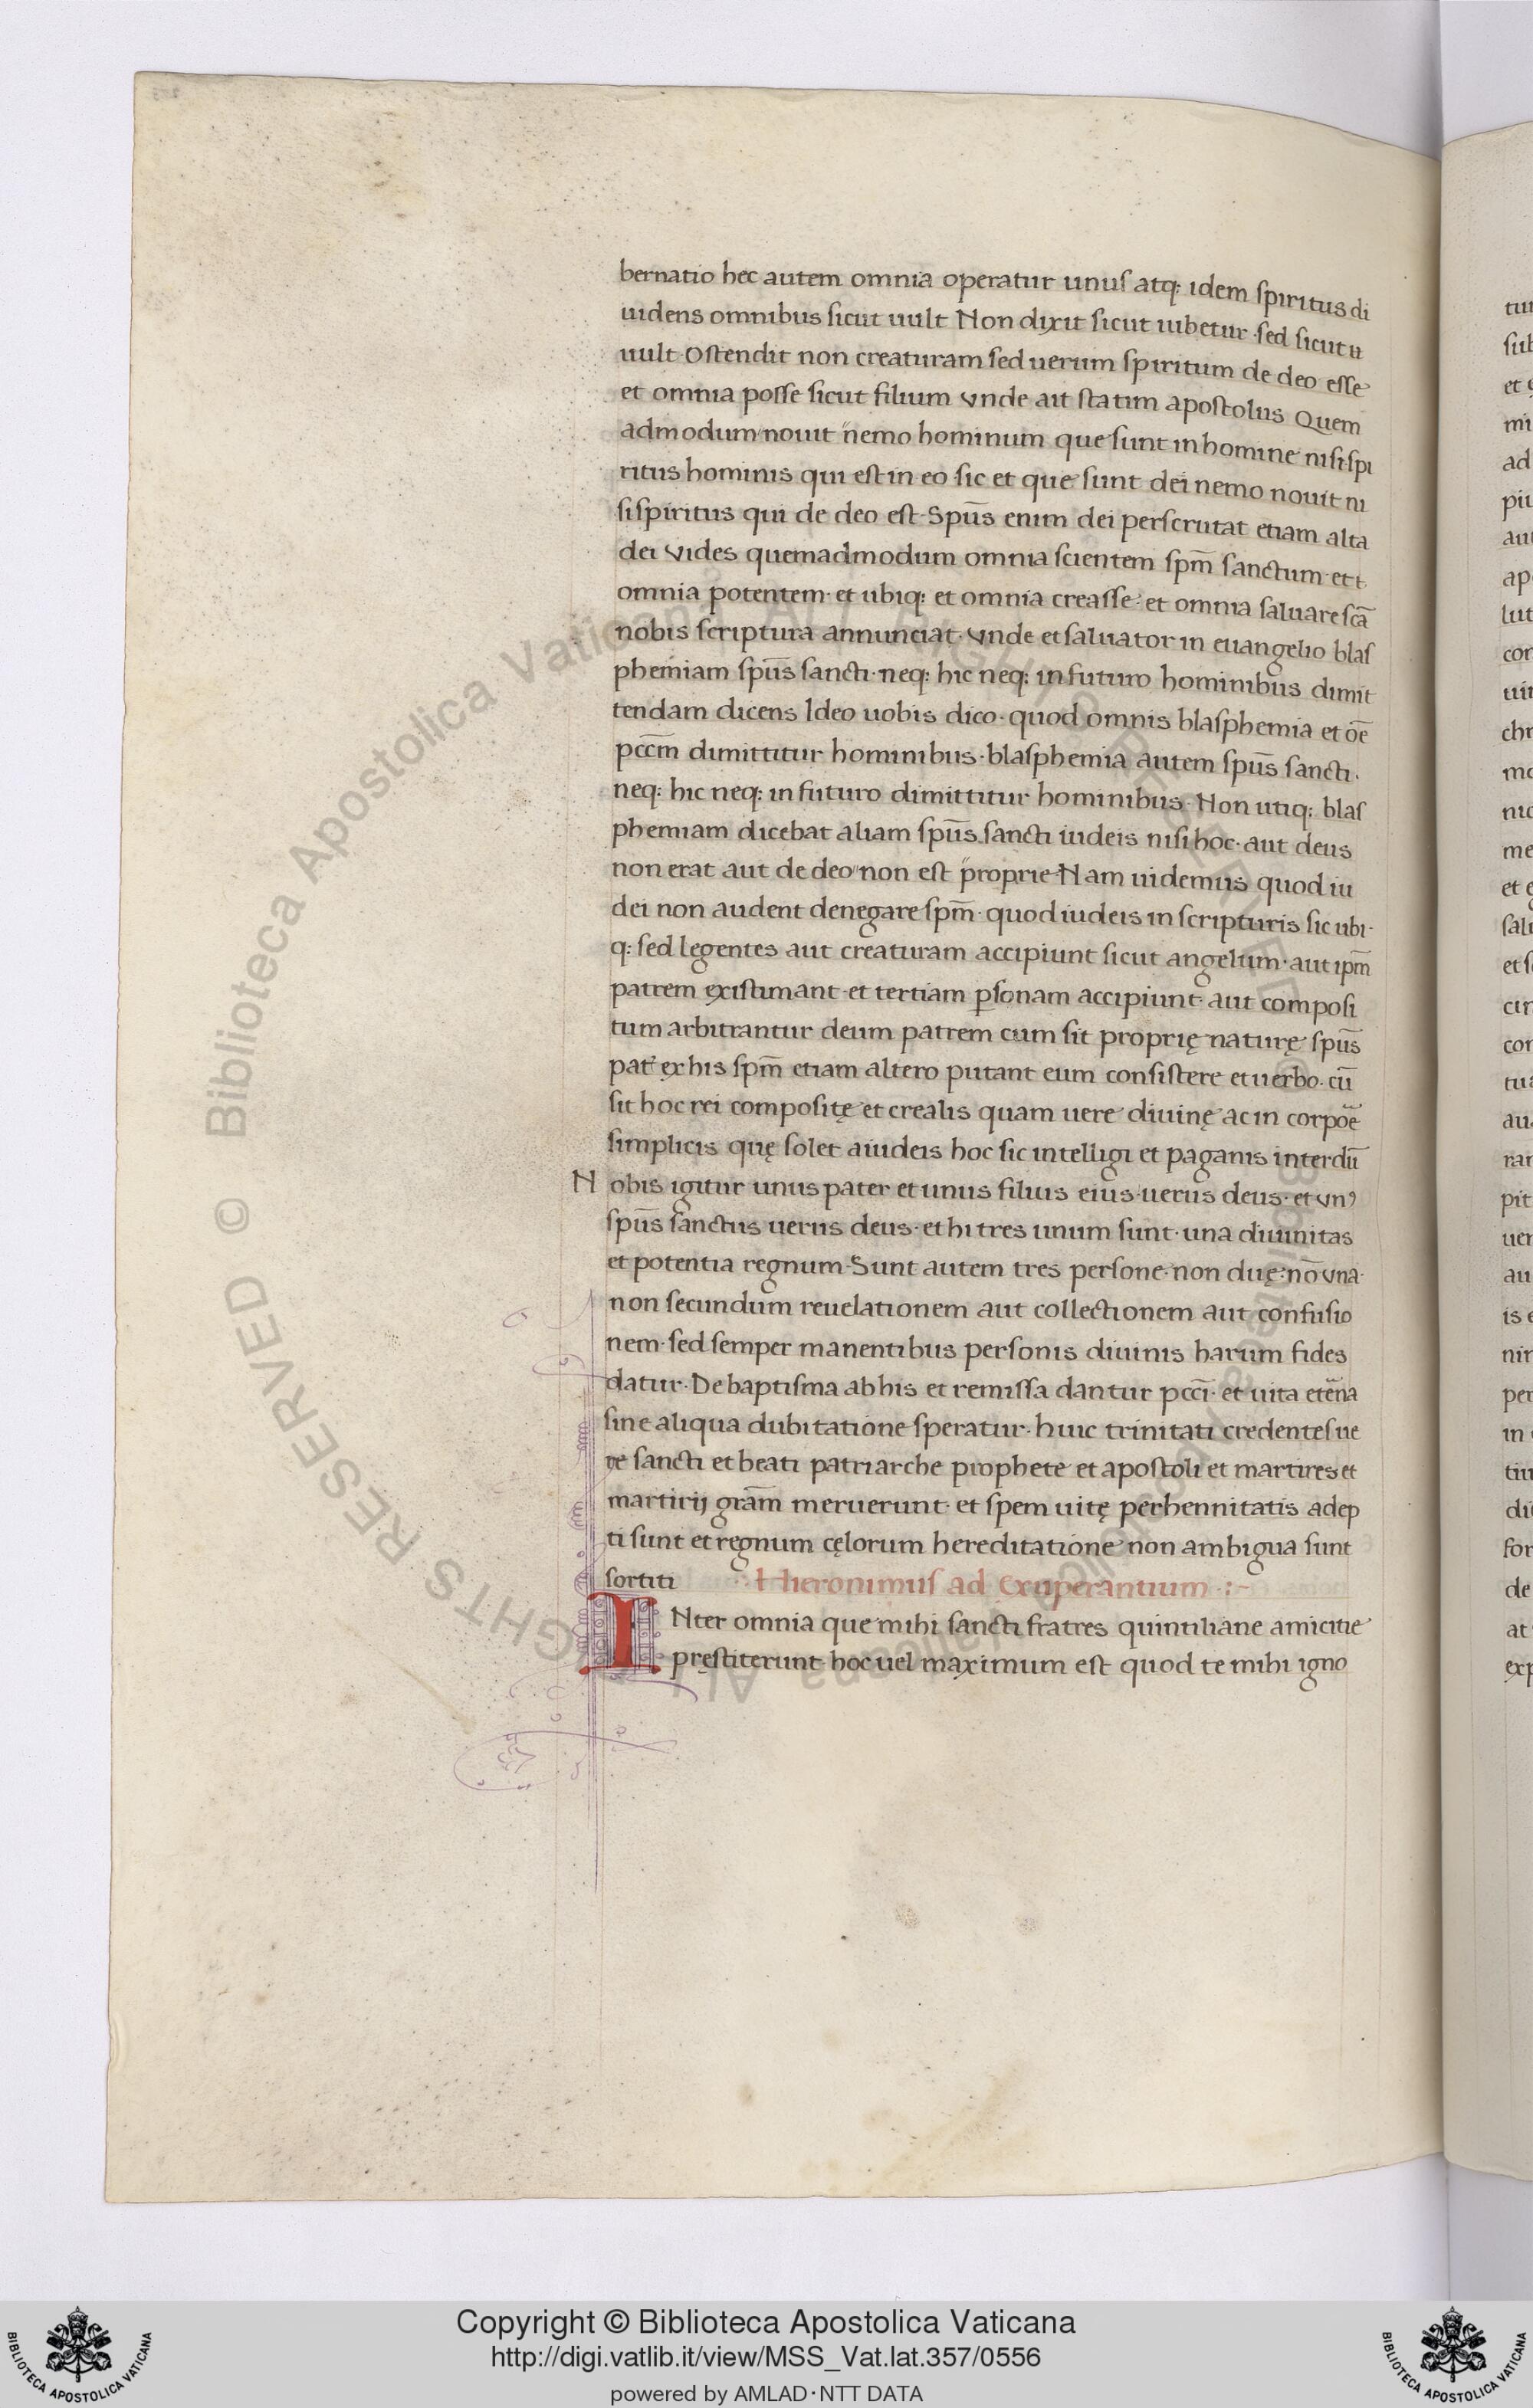 bernatio hec autem omnia operatur unuſ atq; idem ſpiritus di
uidens omnibus ſicut uult Non dixit ſicut iubetur · sed ſicut u
uult · Oſtendit non creaturam ſed uerum ſpiritum de deo eſſe
et omnia poſſe ſicut filium vnde ait ſtatim apoſtolus Quem
admodum nouit nemo hominum que ſunt in homine niſi ſpi
ritus hominis qui eſt in eo ſic et que ſunt dei nemo nouit ni
ſi ſpiritus qui de deo eſt · Spūs enim dei perſcrutat etiam alta
dei vides quemadmodum omnia ſcientem ſpm̄ ſanctum · et t
omnia potentem · et ubiq; et omnia creaſſe · et omnia ſaluare ſcā
nobis ſcriptura annunciat · vnde et ſaluator in euangelio blaſ
phemiam ſpūs ſancti · neq; hic neq; in futuro hominibus dimit
tendam dicens Ideo uobis dico · quod omnis blaſphemia et oē
pccm̄ dimittitur hominibus · blaſphemia autem ſpūs ſancti ·
neq; hic neq; in futuro dimittitur hominibus · Non utiq; blaſ
phemiam dicebat aliam ſpūs ſancti iudeis niſi hoc · aut deus
non erat aut de deo non eſt proprie · Nam uidemus quod iu
dei non audent denegare ſpm̄ · quod iudeis in ſcripturis ſic ubi
q; ſed legentes aut creaturam accipiunt ſicut angelum · aut ipm̄
patrem exiſtimant · et tertiam pſonam accipiunt aut compoſi
tum arbitrantur deum patrem cum ſit proprię naturę ſpūs
pat̄ ex his ſpm̄ etiam altero putant eum conſiſtere et uerbo · cū
ſit hoc rei compoſitę et crealis quam uere diuinę ac in corpoē
ſimplicis quę ſolet a iudeis hoc ſic intelligi et paganis interdū
Nobis igitur unus pater et unus filius eius uerus deus · et vnꝰ
ſpūs ſanctus uerus deus · et hi tres unum ſunt · una diuinitas
et potentia regnum · Sunt autem tres perſone · non duę · nō vna ·
non ſecundum reuelationem aut collectionem aut confuſio
nem · ſed ſemper manentibus perſonis diuinis harum fides
datur · De baptiſma ab his et remiſſa dantur pccī · et uita etēna
ſine aliqua dubitatione ſperatur · huic trinitati credenteſ ue
re ſancti et beati patriarche prophete et apoſtoli et martires et
martirij grām meruerunt · et ſpem uitę perhennitatis adep
ti ſunt et regnum cęlorum hereditatione non ambigua ſunt
ſortiti · Hieronimuſ ad Exuperantium :~
INter omnia que mihi ſancti fratres quintiliane amicitie
pręſtiterunt hoc uel maximum eſt quod te mihi igno
tur
et
mi
ad
lut
chr
me
© Biblioteca Apostolica Vaticana ALL RIGHTS RESERVED © Biblioteca Apostolica Vaticana ALL RIGHTS RESERVED
BIBLIOTECA APOSTOLICA VATICANA
Copyright © Biblioteca Apostolica Vaticana
http://digi.vatlib.it/view/MSS_Vat.lat.357/0556
powered by AMLAD · NTT DATA
BIBLIOTECA APOSTOLICA VATICANA